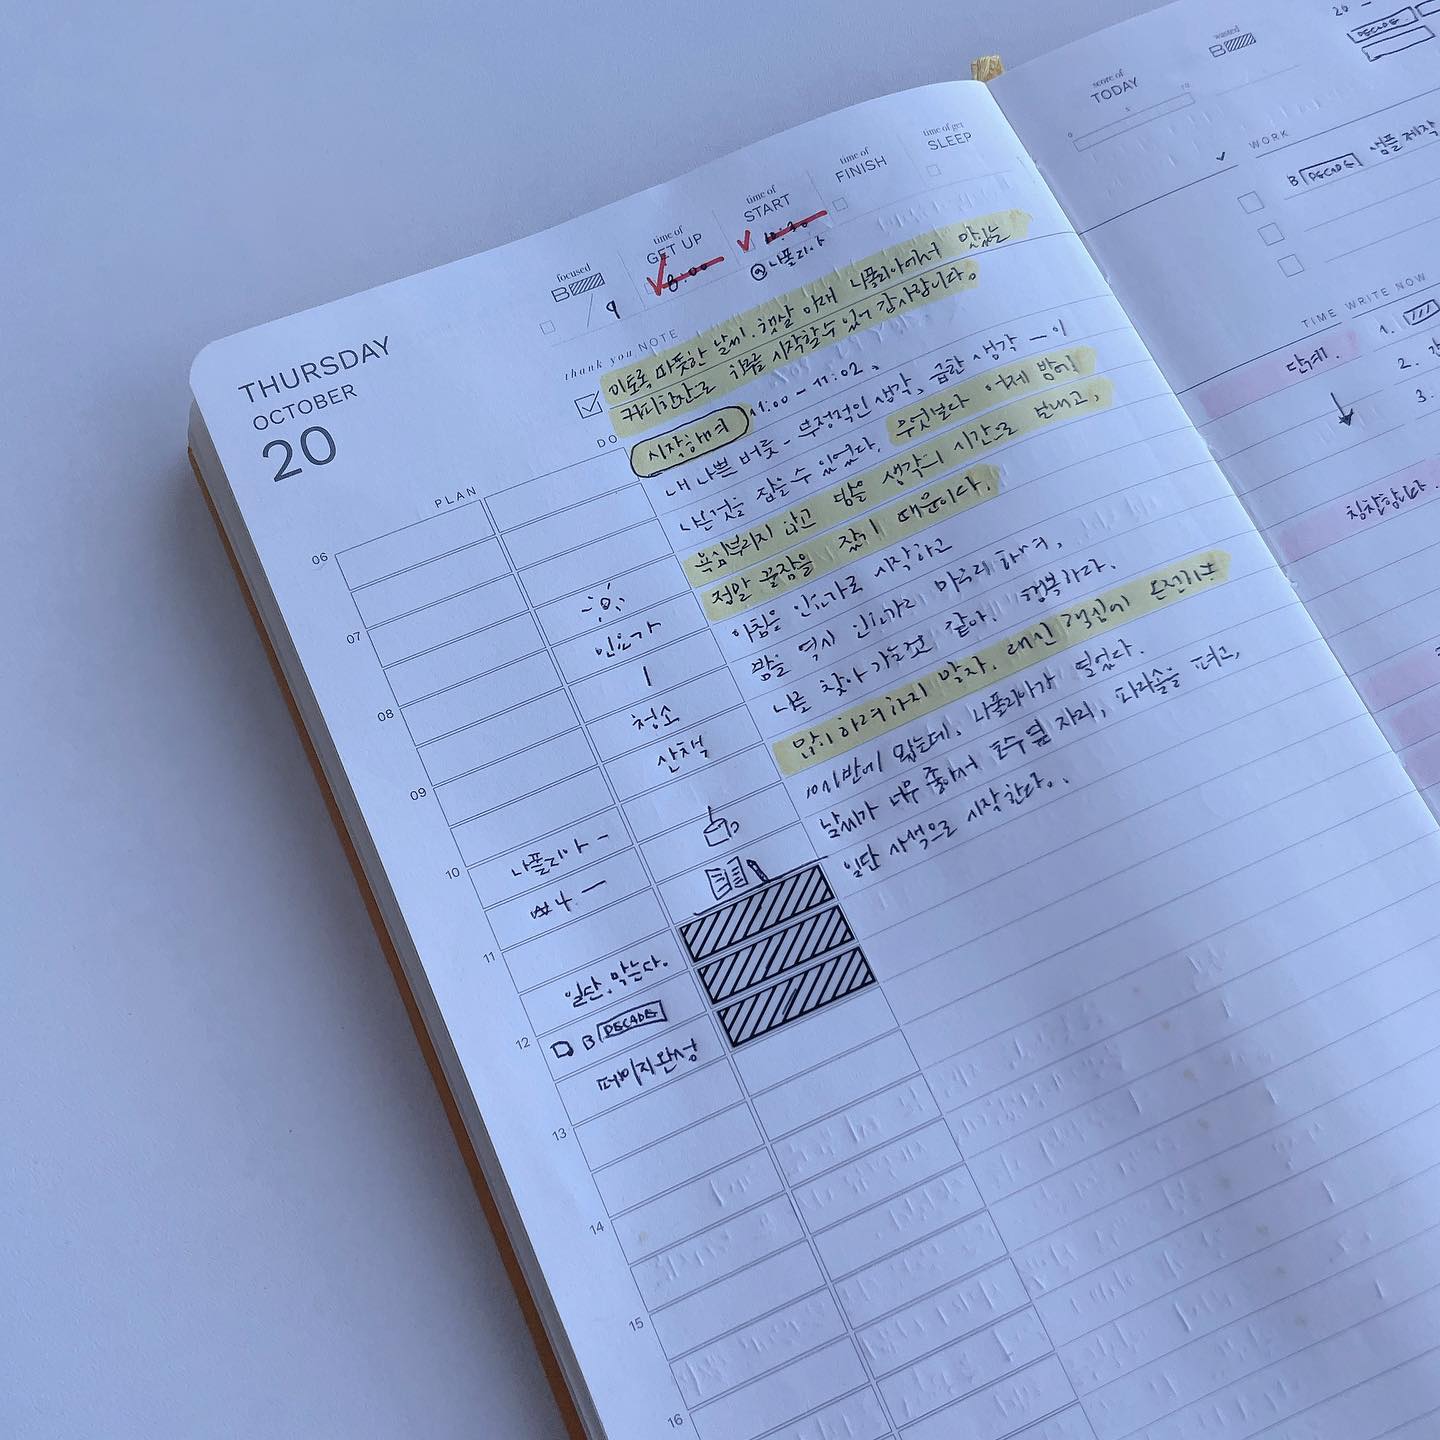 THURSDAY
OCTOBER
20
focused
B
/ 9
time of
GET UP
8:00
time of
START
10:30
@나폴리아
time of
FINISH
time of get
SLEEP
thank you NOTE
이토록 따뜻한 날씨. 햇살 아래 나폴리아에서 맛있는
커피한잔으로 하루를 시작할 수 있어 감사합니다.
시작하며 11:00 - 11:02.
내 나쁜 버릇 - 부정적인 생각, 급한 생각 - 이
나은것을 잡을 수 있었다. 무엇보다 어제 밤에
욕심부리지 않고 밤을 생각의 시간으로 보내고,
정말 꿀잠을 잤기 때문이다.
아침은 인요가로 시작하고
밤을 역시 인요가로 마무리하며,
나를 찾아가는것 같아. 행복하다.
많이 하려하지 말자. 대신 핵심에
10시반에 왔는데, 나폴리아가 열었다.
날씨가 너무 좋아서 호수옆 자리, 파라솔을 펴고,
일단 사색으로 시작한다.
PLAN
DO
06
07
08
09
10
11
12
13
14
15
16
인요가
청소
산책
나폴리아 -
일단, 막는다.
B DECADE
페이지 완성
score of
TODAY
wasted
B
26 -
DECADE
WORK
B DECADE 샘플 제작
TIME WRITE NOW
단계.
1.
2.
3.
칭찬합니다.